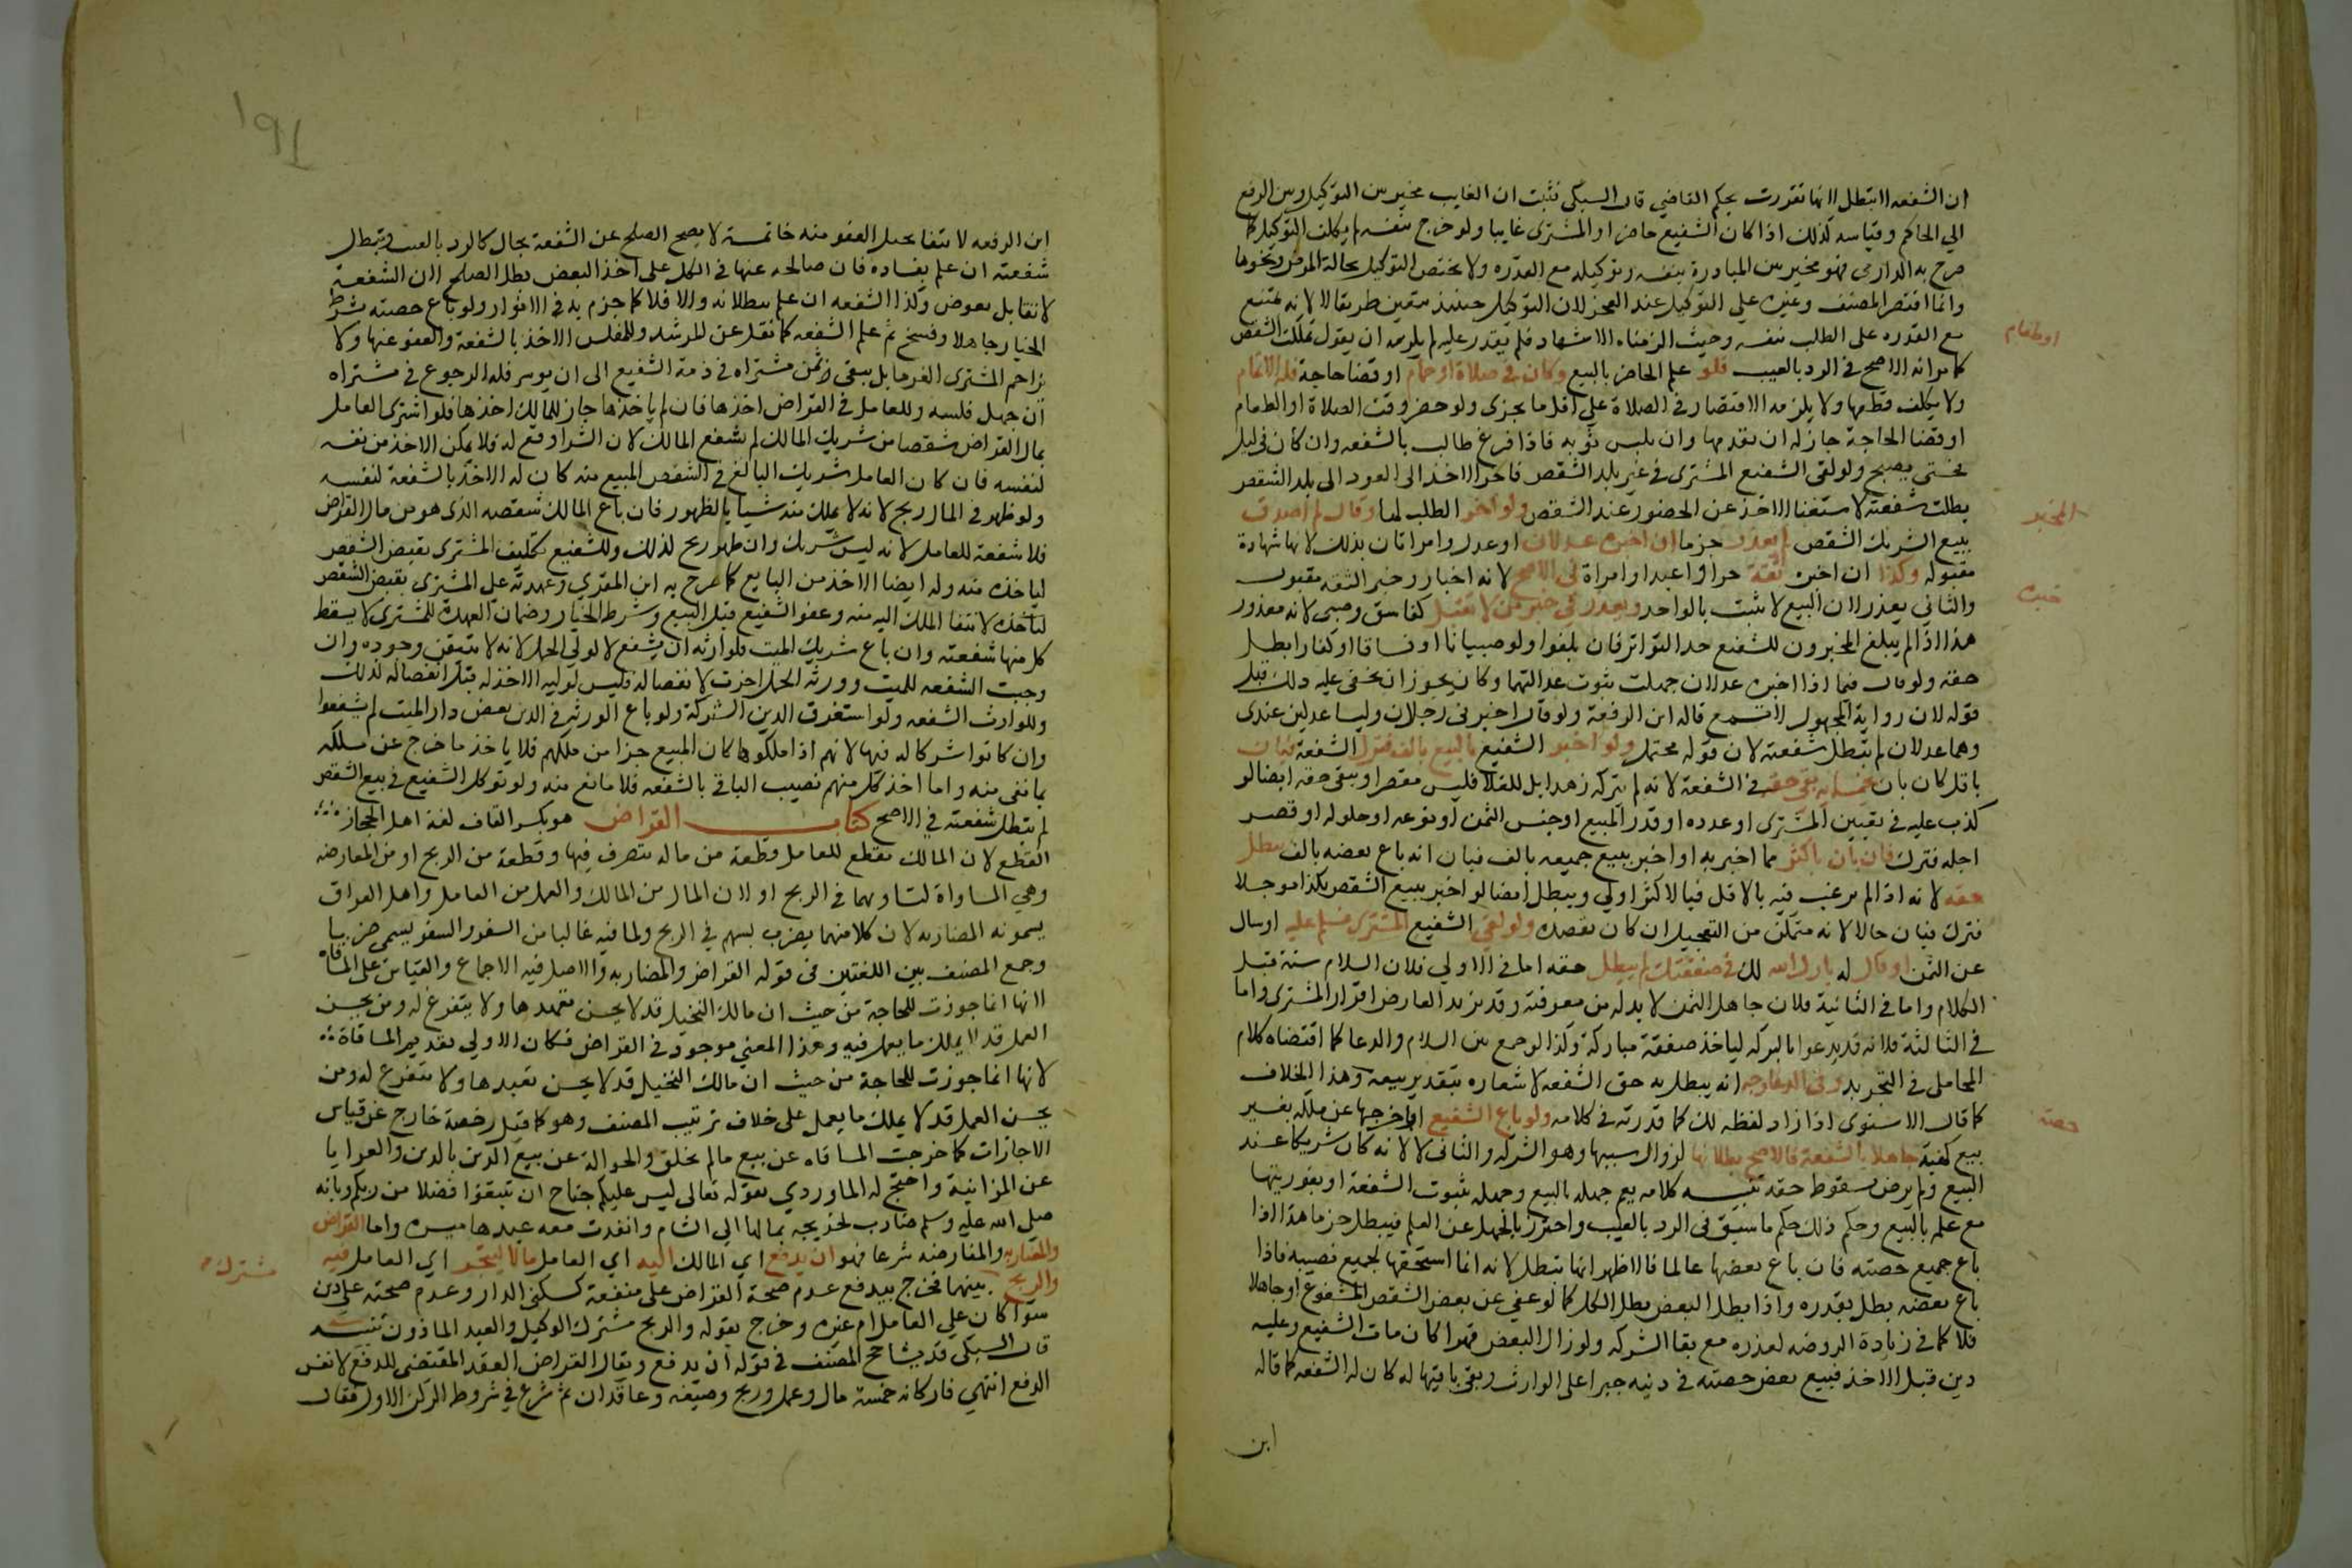 ان الشفعه لا تبطل لانها تقررت بحكم القاضي قال السبكي فثبت ان الغايب مخير بين التوكيل وبين الرفع
الي الحاكم وقياسه كذلك اذا كان الشفيع حاضرا والمشتري غايبا ولو خرج بنفسه لم يكلف التوكيل كما
صرح به الدارمي فهو مخير بين المبادرة بنفسه وتوكيله مع القدره ولا يختص التوكيل بحالة المرض ونحوها
وانما اقتصر المصنف وغيره علي التوكيل عند العجز لان التوكيل حينئذ متعين طريقا لا لانه يمتنع
مع القدره على الطلب بنفسه وحيث الزمناه الاشهاد فلم يقدر عليه لم يلزمه ان يقول تملكت الشقص
كما مر انه الاصح في الرد بالعيب فلو علم الحاضر بالبيع وكان في صلاة او حمام او قضا حاجة فله الاتمام
او طعام
ولا يكلف قطعها ولا يلزمه الاقتصار في الصلاة علي اقل ما يجزى ولو حضر وقت الصلاة او الطعام
او قضا الحاجة جاز له ان يقدمها وان يلبس ثوبه فاذا فرغ طالب بالشفعه وان كان في ليل
فحتى يصبح ولو لقى الشفيع المشترى في غير بلد الشقص فاخر الاخذ الى العود الى بلد الشقص
بطلت شفعته لاستغنا الاخذ عن الحضور عند الشقص ولو اخر الطلب لها وقال لم اصدق
المخبر
ببيع الشريك الشقص لم يعذر جزما ان اخبره عدلان او عدل وامراتان بذلك لانها شهادة
مقبوله وكذا ان اخبره ثقة حرا او عبدا او امراة في الاصح لانه اخبار وخبر الثقه مقبول
خبره
والثاني يعذر لان البيع لا يثبت بالواحد ويعذر في خبر من لا يقبل كفاسق وصبى لانه معذور
هذا اذا لم يبلغ المخبرون للشفيع حد التواتر فان بلغوا ولو صبيانا او فساقا او كفارا بطل
حقه ولو قال فيما اذا اخبره عدلان جهلت ثبوت عدالتهما وكان يجوز ان يخفى عليه ذلك قبل
قوله لان رواية المجهول لا تسمع قاله ابن الرفعة ولو قال اخبرنى رجلان وليسا عدلين عندى
وهما عدلان لم تبطل شفعته لان قوله محتمل ولو اخبر الشفيع بالبيع بالف فترك الشفعة فبان
باقل كان بان بخمسمايه بقي حقه في الشفعة لانه لم يتركه زهدا بل للغلا فليس مقصرا ويبقى حقه ايضا لو
كذب عليه في تعيين المشترى او عدده او قدر المبيع او جنس الثمن او نوعه او حلوله او قصر
اجله فترك فان بان باكثر مما اخبر به او اخبر ببيع جميعه بالف فبان انه باع بعضه بالف بطل
حقه لانه اذا لم يرغب فيه بالاقل فبالاكثر اولي ويبطل ايضا لو اخبر ببيع الشقص بكذا موجلا
فترك فبان حالا لانه متمكن من التعجيل ان كان يقصده ولو لقي الشفيع المشترى فسلم عليه او سال
عن الثمن او قال له بارك الله لك في صفقتك لم يبطل حقه اما في الاولي فلان السلام سنة قبل
الكلام واما في الثانية فلان جاهل الثمن لا بد له من معرفته وقد يريد العارف اقرار المشتري واما
في الثالثة فلانه قد يدعوا بالبركه لياخذ صفقة مباركة وكذا لو جمع بين السلام والدعا كما اقتضاه كلام
المحاملى في التجريد وفي الدعا وجه انه يبطل به حق الشفعه لاشعاره بتقدير بيعه وهذا الخلاف
كما قال الاسنوى اذا زاد لفظه لك كما قدرته في كلامه ولو باع الشفيع او اخرجها عن ملكه بغير
حصته
بيع كهبة جاهلا بالشفعة فالاصح بطلانها لزوال سببها وهو الشركه والثاني لا لانه كان شريكا عند
البيع ولم يرض بسقوط حقه تنبيه كلامه يعم جهله بالبيع وجهله بثبوت الشفعة او بفوريتها
مع علمه بالبيع وحكم ذلك حكم ما سبق فى الرد بالعيب واحترز بالجهل عن العلم فيبطل جزما هذا اذا
باع جميع حصته فان باع بعضها عالما فالاظهر انها تبطل لانه انما استحقها لجميع نصيبه فاذا
باع بعضه بطل بقدره واذا بطل البعض بطل الكل كما لو عفى عن بعض الشقص المشفوع او جاهلا
فلا كما في زيادة الروضه لعذره مع بقا الشركه ولو زال البعض قهرا كان مات الشفيع وعليه
دين قبل الاخذ فبيع بعض حصته في دينه جبرا على الوارث وبقي باقيها له كان له الشفعه كما قاله
ابن
١٩١
ابن الرفعه لانتفا تخيل العفو منه خاتمة لا يصح الصلح عن الشفعة بحال كالرد بالعيب وتبطل
شفعته ان علم بفساده فان صالحه عنها في الكل على اخذ البعض بطل الصلح لان الشفعة
لا تقابل بعوض وكذا الشفعه ان علم ببطلانه والا فلا كما جزم به في الانوار ولو باع حصته بشرط
الخيار جاهلا وفسخ ثم علم الشفعه كما نقل عن المرشد وللمفلس الاخذ بالشفعة والعفو عنها ولا
يزاحم المشترى الغرما بل يبقى ثمن مشتراه في ذمة الشفيع الى ان يوسر فله الرجوع في مشتراه
ان جهل فلسه وللعامل في القراض اخذها فان لم ياخذها جاز للمالك اخذها فلو اشترى العامل
بمال القراض شقصا من شريك المالك لم يشفع المالك لان الشرا وقع له فلا يمكن الاخذ من نفسه
لنفسه فان كان العامل شريك البائع في الشقص المبيع منه كان له الاخذ بالشفعة لنفسه
ولو ظهر في المال ربح لانه لا يملك منه شيا بالظهور فان باع المالك شقصه الذى هو من مال القراض
فلا شفعة للعامل لانه ليس شريك وان ظهر ربح لذلك وللشفيع تكليف المشترى بقبض الشقص
لياخذه منه وله ايضا الاخذ من البايع كما صرح به ابن المقري وعهدته على المشترى بقبض الشقص
لياخذه لانتفا الملك اليه منه وعفو الشفيع قبل البيع وشرط الخيار وضمان العهدة للمشترى لا يسقط
كل منها شفعته وان باع شريك الميت فلوارثه ان يشفع لا لولي الحمل لانه لا يتيقن وجوده وان
وجبت الشفعه للميت وورثه الحمل اخرت لانفصاله فليس لوليه الاخذ له قبل انفصاله لذلك
وللوارث الشفعه ولو استغرق الدين التركة ولو باع الورثه في الدين بعض دار الميت لم يشفعوا
وان كانوا شركا له فيها لانهم اذا ملكوها كان المبيع جزا من ملكهم فلا ياخذ ما خرج عن ملكه
بما بقى منه واما اخذ كل منهم نصيب الباقي بالشفعه فلا مانع منه ولو توكل الشفيع في بيع الشقص
لم تبطل شفعته في الاصح كتاب القراض هو بكسر القاف لغة اهل الحجاز
القطع لان المالك يقطع للعامل قطعة من ماله يتصرف فيها وقطعة من الربح او من المقارضه
وهي المساواة لتساويهما في الربح او لان المال من المالك والعمل من العامل واهل العراق
يسمونه المضاربه لان كلا منهما يضرب بسهم في الربح ولما فيه غالبا من السفر والسفر يسمى ضربا
وجمع المصنف بين اللغتين فى قوله القراض والمضاربه والاصل فيه الاجماع والقياس على المساقاه
لانها انما جوزت للحاجة من حيث ان مالك النخيل قد لا يحسن تعهدها ولا يتفرغ له ومن يحسن
العمل قد لا يملك ما يعمل فيه وهذا المعني موجود في القراض فكان الاولى تقديم المساقاة
لانها انما جوزت للحاجة من حيث ان مالك النخيل قد لا يحسن تعبدها ولا يتفرغ له ومن
يحسن العمل قد لا يملك ما يعمل على خلاف ترتيب المصنف وهو كما قيل رخصة خارج عن قياس
الاجازات كما خرجت المساقاه عن بيع مالم يخلق والحوالة عن بيع الدين بالدين والعرايا
عن المزابنة واحتج له الماوردي بقوله تعالى ليس عليكم جناح ان تبتغوا فضلا من ربكم وبانه
صلى الله عليه وسلم ضارب لخديجه بمالها الي الشام وانفذت معه عبدها ميسره واما القراض
والمضاربه والمقارضه شرعا فهو ان يدفع اي المالك اليه اي العامل مالا ليتجر اي العامل فيه
والربح بينهما فخرج بيدفع عدم صحة القراض على منفعة كسكنى الدار وعدم صحته على دين
مشترك
سوا كان علي العامل ام غيره وخرج بقوله والربح مشترك الوكيل والعبد الماذون تنبيه
قال السبكى قد يشاحح المصنف في قوله ان يدفع ويقال القراض العقد المقتضى للدفع لا نفس
الدفع انتهي فاركانه خمسة مال وعمل وربح وصيغه وعاقدان ثم شرع في شروط الركن الاول فقال